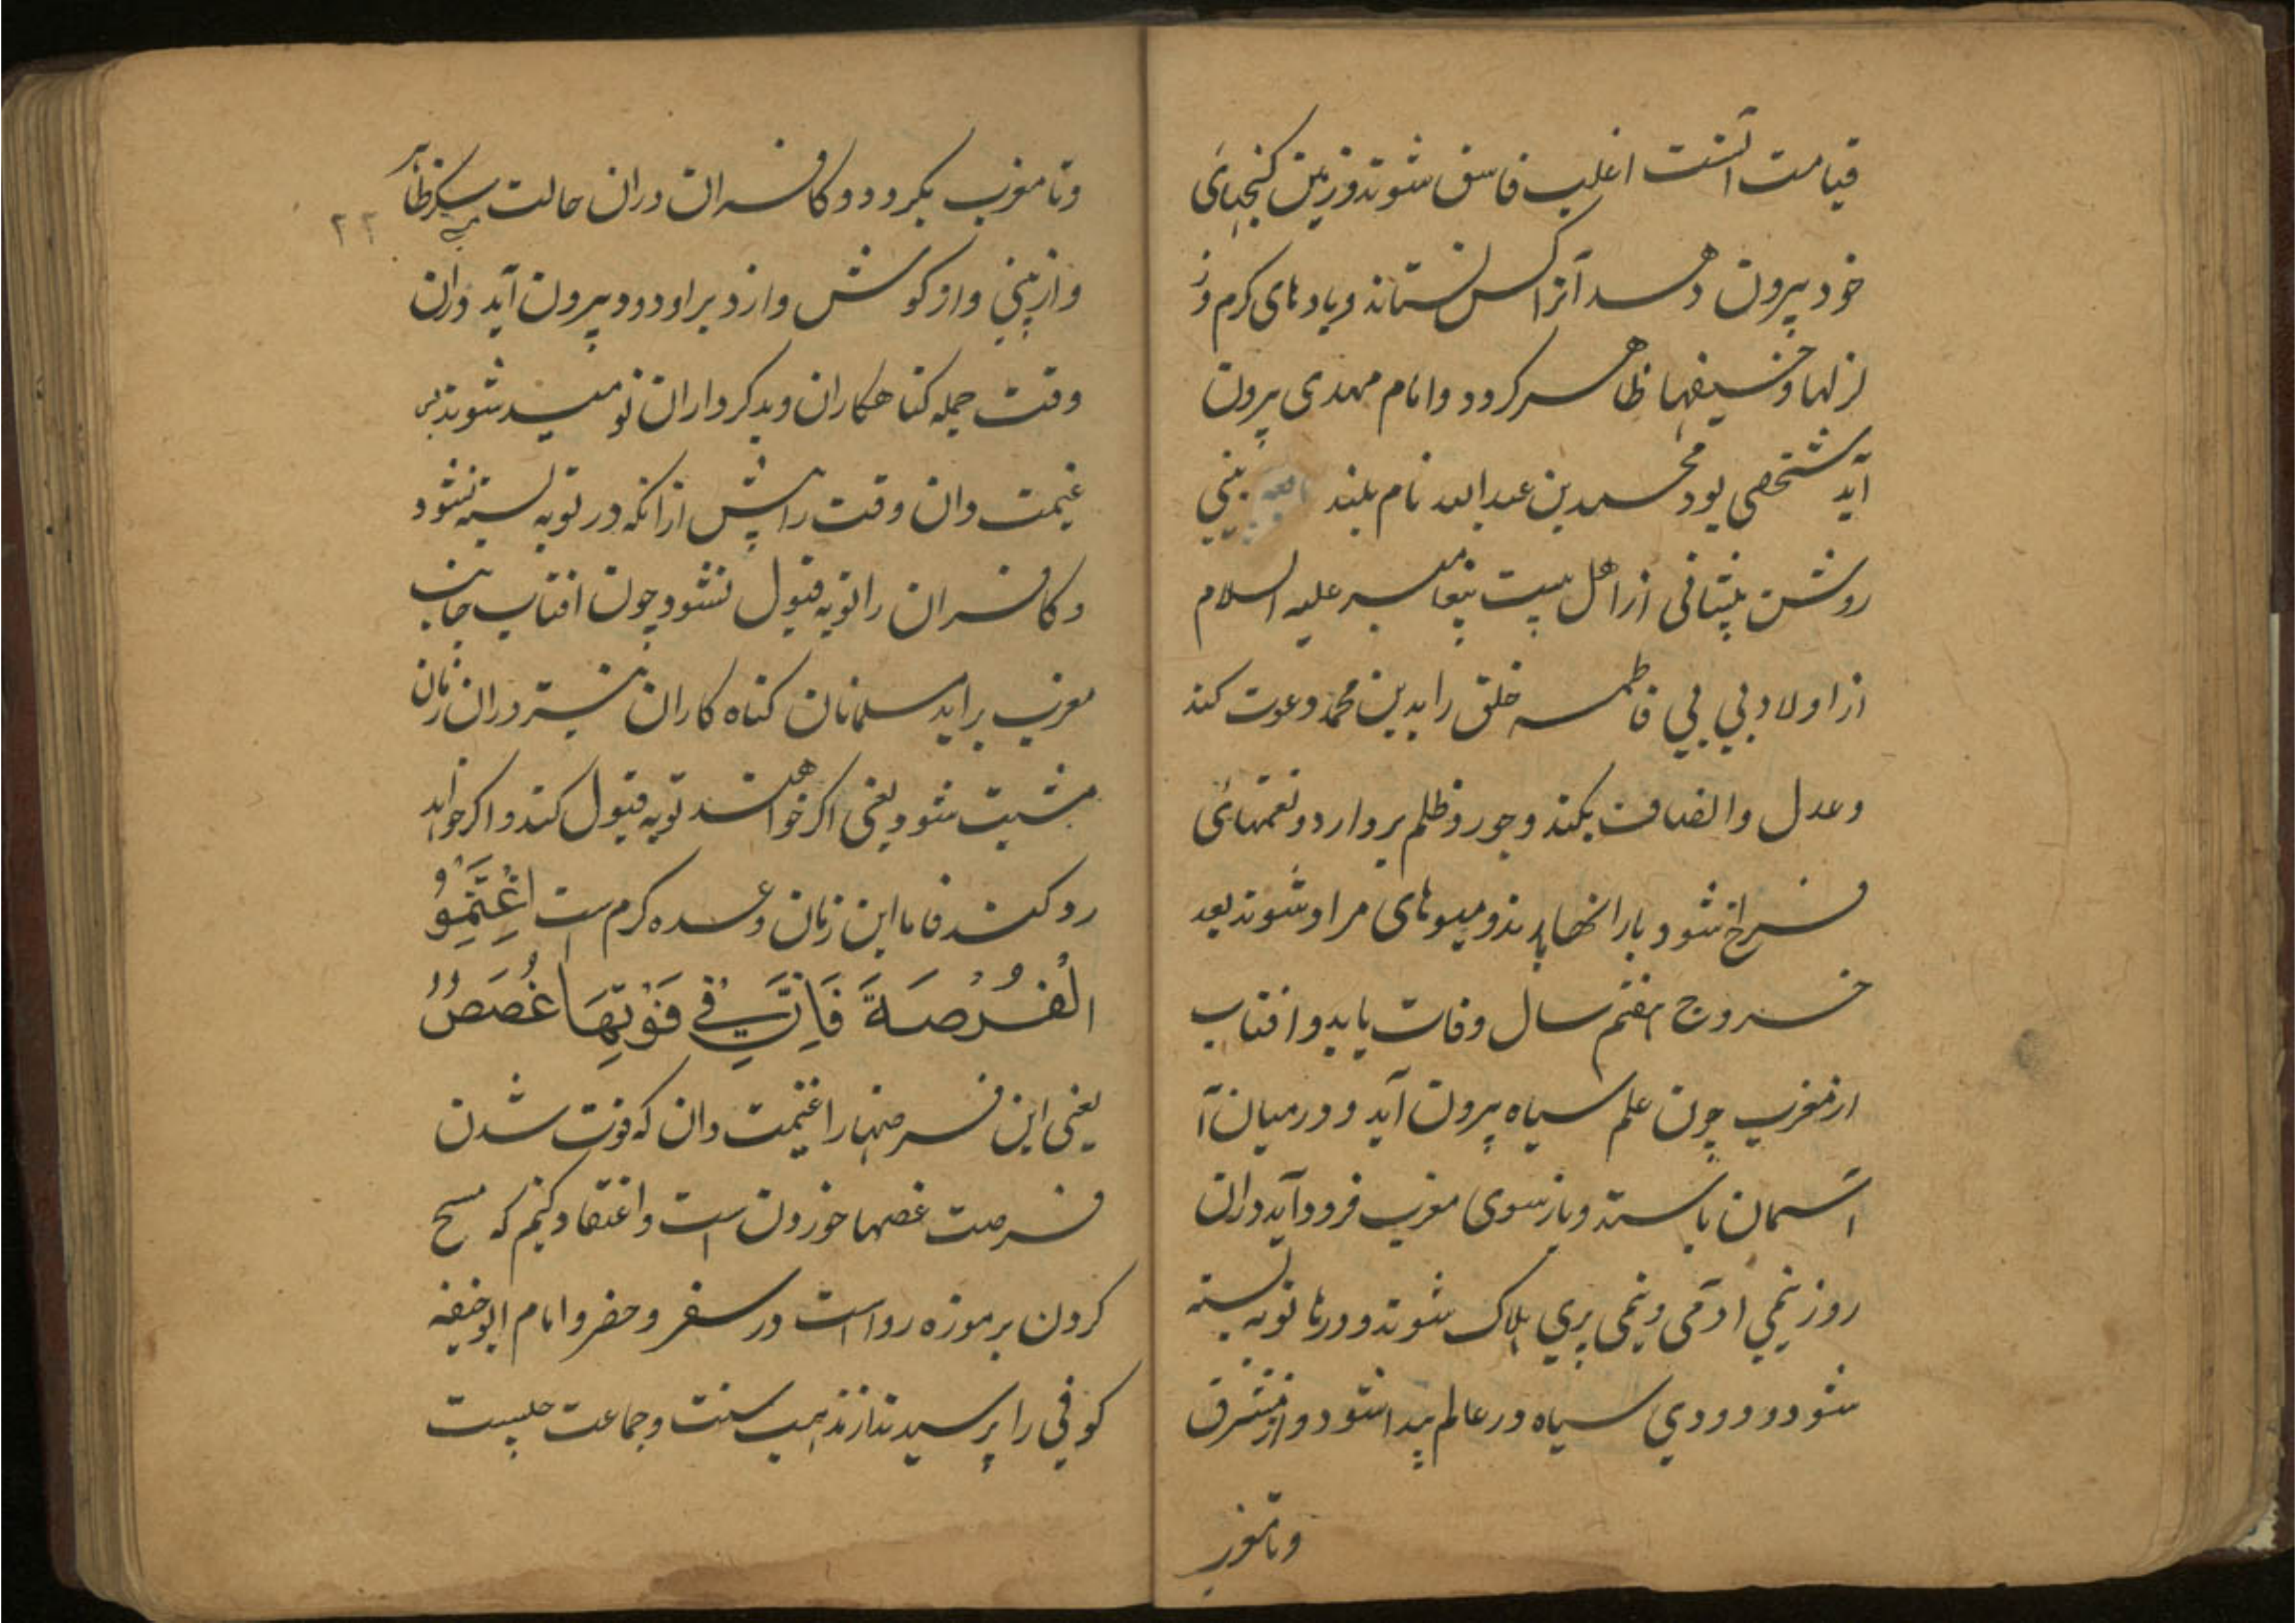 قیامت آنست اغلب فاسق شوند و زمین کنجهائی
خود بیرون دهد آنرا کس نستاند و بادهای کرم و ز
لزلها و خسیفها ظاهر کردد و امام مهدی بیرون
آید شخصی بود محمد بن عبدالله نام بلند بینی
روشن پیشانی از اهل بیت پیغامبر علیه السلام
از اولاد بی بی فاطمه خلق را بدین محمد دعوت کند
و عدل و انصاف بکند و جور و ظلم بردارد و نعمتهائی
فراخ شود بارانها بارند و میوهای مراد شوند بعد
خروج هفتم سال وفات یابد و افتاب
از مغرب چون علم سیاه بیرون آید و درمیان آ
آسمان باستد و باز سوی مغرب فرود آید دران
روز نیمی ادمی و نیمی پری هلاک شوند و درها توبه بسته
شود و دودی سیاه در عالم پیدا شود و از مشرق
و تا مغرب
و تا مغرب بکرود و کافران دران حالت
۲۲
و از بینی و از کوش و از دبر او دود بیرون آید دران
وقت جمله کناهکاران و بدکرداران نومید شوند پس
غنیمت دان وقت را پیش ازانکه در توبه بسته نشود
و کافران را توبه قبول نشود چون افتاب جانب
مغرب براید مسلمانان کناه کاران بیشتر دران زمان
مشیت شود یعنی اکر خواهند توبه قبول کند و اکر خواهد
رد کند فاما این زمان وعده کرم است اِغْتَنِمُوْ
الْفُرْصَةَ فَاِنَّ فِیْ فَوْتِهَا غُصَصٌ
یعنی این فرصتها را غنیمت دان که فوت شدن
فرصت غصها خوردن است و اعتقاد کنیم که مسح
کردن بر موزه رواست در سفر و حضر و امام ابوحنیفه
کوفی را پرسیدند از مذهب سنت و جماعت چیست